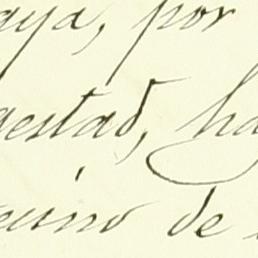 aya, por
gestad, ha
ecino de